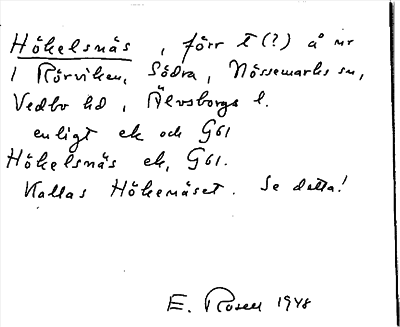 Hökelsnäs, förr t(?) å nr
1 Rörviken, Södra, Nössemarks sn,
Vedbo hd, Älvsborgs l.
enligt ek och G61
Hökelsnäs ek, G61.
Kallas Hökenäset. Se detta!
E. Rosell 1948